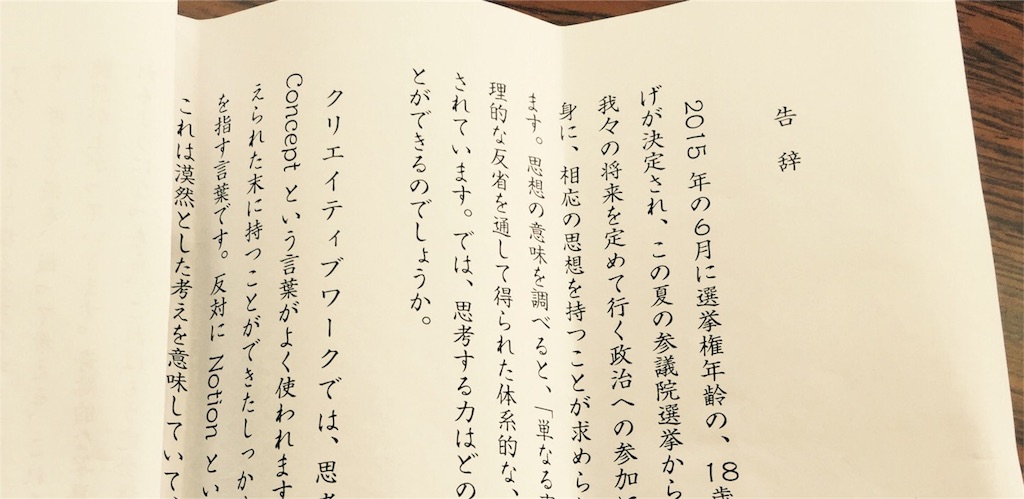 告辞
2015年の6月に選挙権年齢の、18歳
げが決定され、この夏の参議院選挙から
我々の将来を定めて行く政治への参加に
身に、相応の思想を持つことが求めら
ます。思想の意味を調べると、「単なる
理的な反省を通して得られた体系的な、
されています。では、思考する力はどの
とができるのでしょうか。
クリエイティブワークでは、思考
Conceptという言葉がよく使われます
えられた末に持つことができたしっか
を指す言葉です。反対にNotionとい
これは漠然とした考えを意味していて